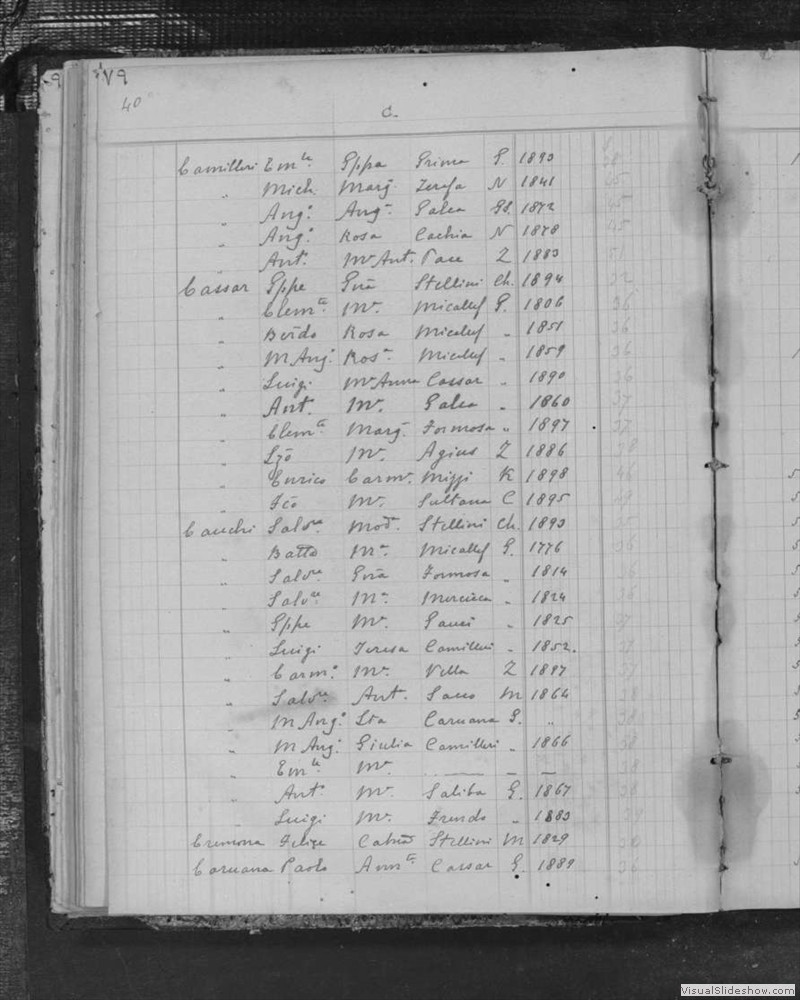 40
C.
Camilleri Em.le Gppa Grima G. 1893
„ Mich. Marg. Zerafa N 1841
„ Ang.o Ang.a Galea Gd. 1872
„ Ang.o Rosa Cachia N 1878
„ Ant. M.a Ant. Pace Z 1883
Cassar Gppe Gra Stellini Ch. 1894 32
„ Clem.te M.a Micallef G. 1806 36
„ Berdo Rosa Micallef „ 1851 36
„ M Ang.o Ros.a Micallef „ 1859 36
„ Luigi M.a Anna Cassar „ 1890 36
„ Ant. M.a Galea „ 1860 37
„ Clem.te Marg. Formosa „ 1897 37
„ M.a Agius Z 1886 38
„ Enrico Carm.a Mizzi K 1898 46
„ Fco M.a Sultana C 1895
Cauchi Salv.re Mod.a Stellini Ch. 1893
„ Batto M.a Micallef G. 1776 36
„ Salv.re Gra Formosa „ 1814 36
„ Salv.re M.a Mercieca „ 1824 36
„ Gppe M.a „ 1825 37
„ Luigi Teresa Camilleri „ 1852. 37
„ Carm.o M.a Vella Z 1897 37
„ Salv.re Ant. Sacco M 1864 38
„ M Ang.o Sta Caruana G. „ 38
„ M Ang.o Giulia Camilleri „ 1866 38
„ Em.le M.a — — — 38
„ Ant.o M.a Saliba G. 1867 38
„ Luigi M.a Frendo „ 1883 39
Cremona Felice Stellini M 1829 38
Caruana Paolo Ann.ta Cassar G. 1889 36
VisualSlideshow.com